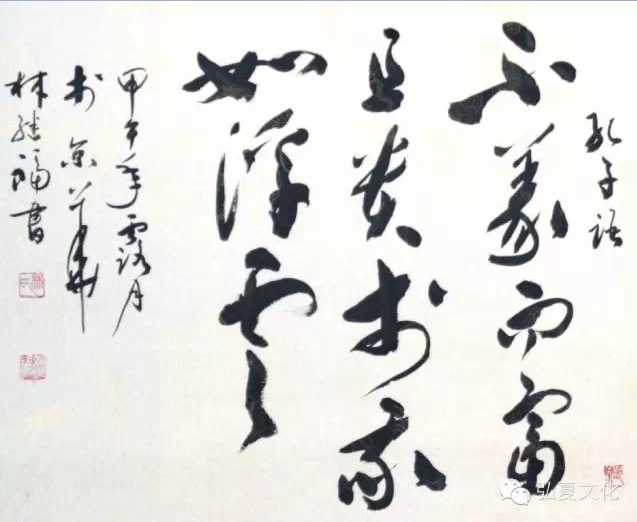 孔子語
不義而富
且貴於我
如浮雲
甲午年露月
於京華
林 福書
弘夏文化